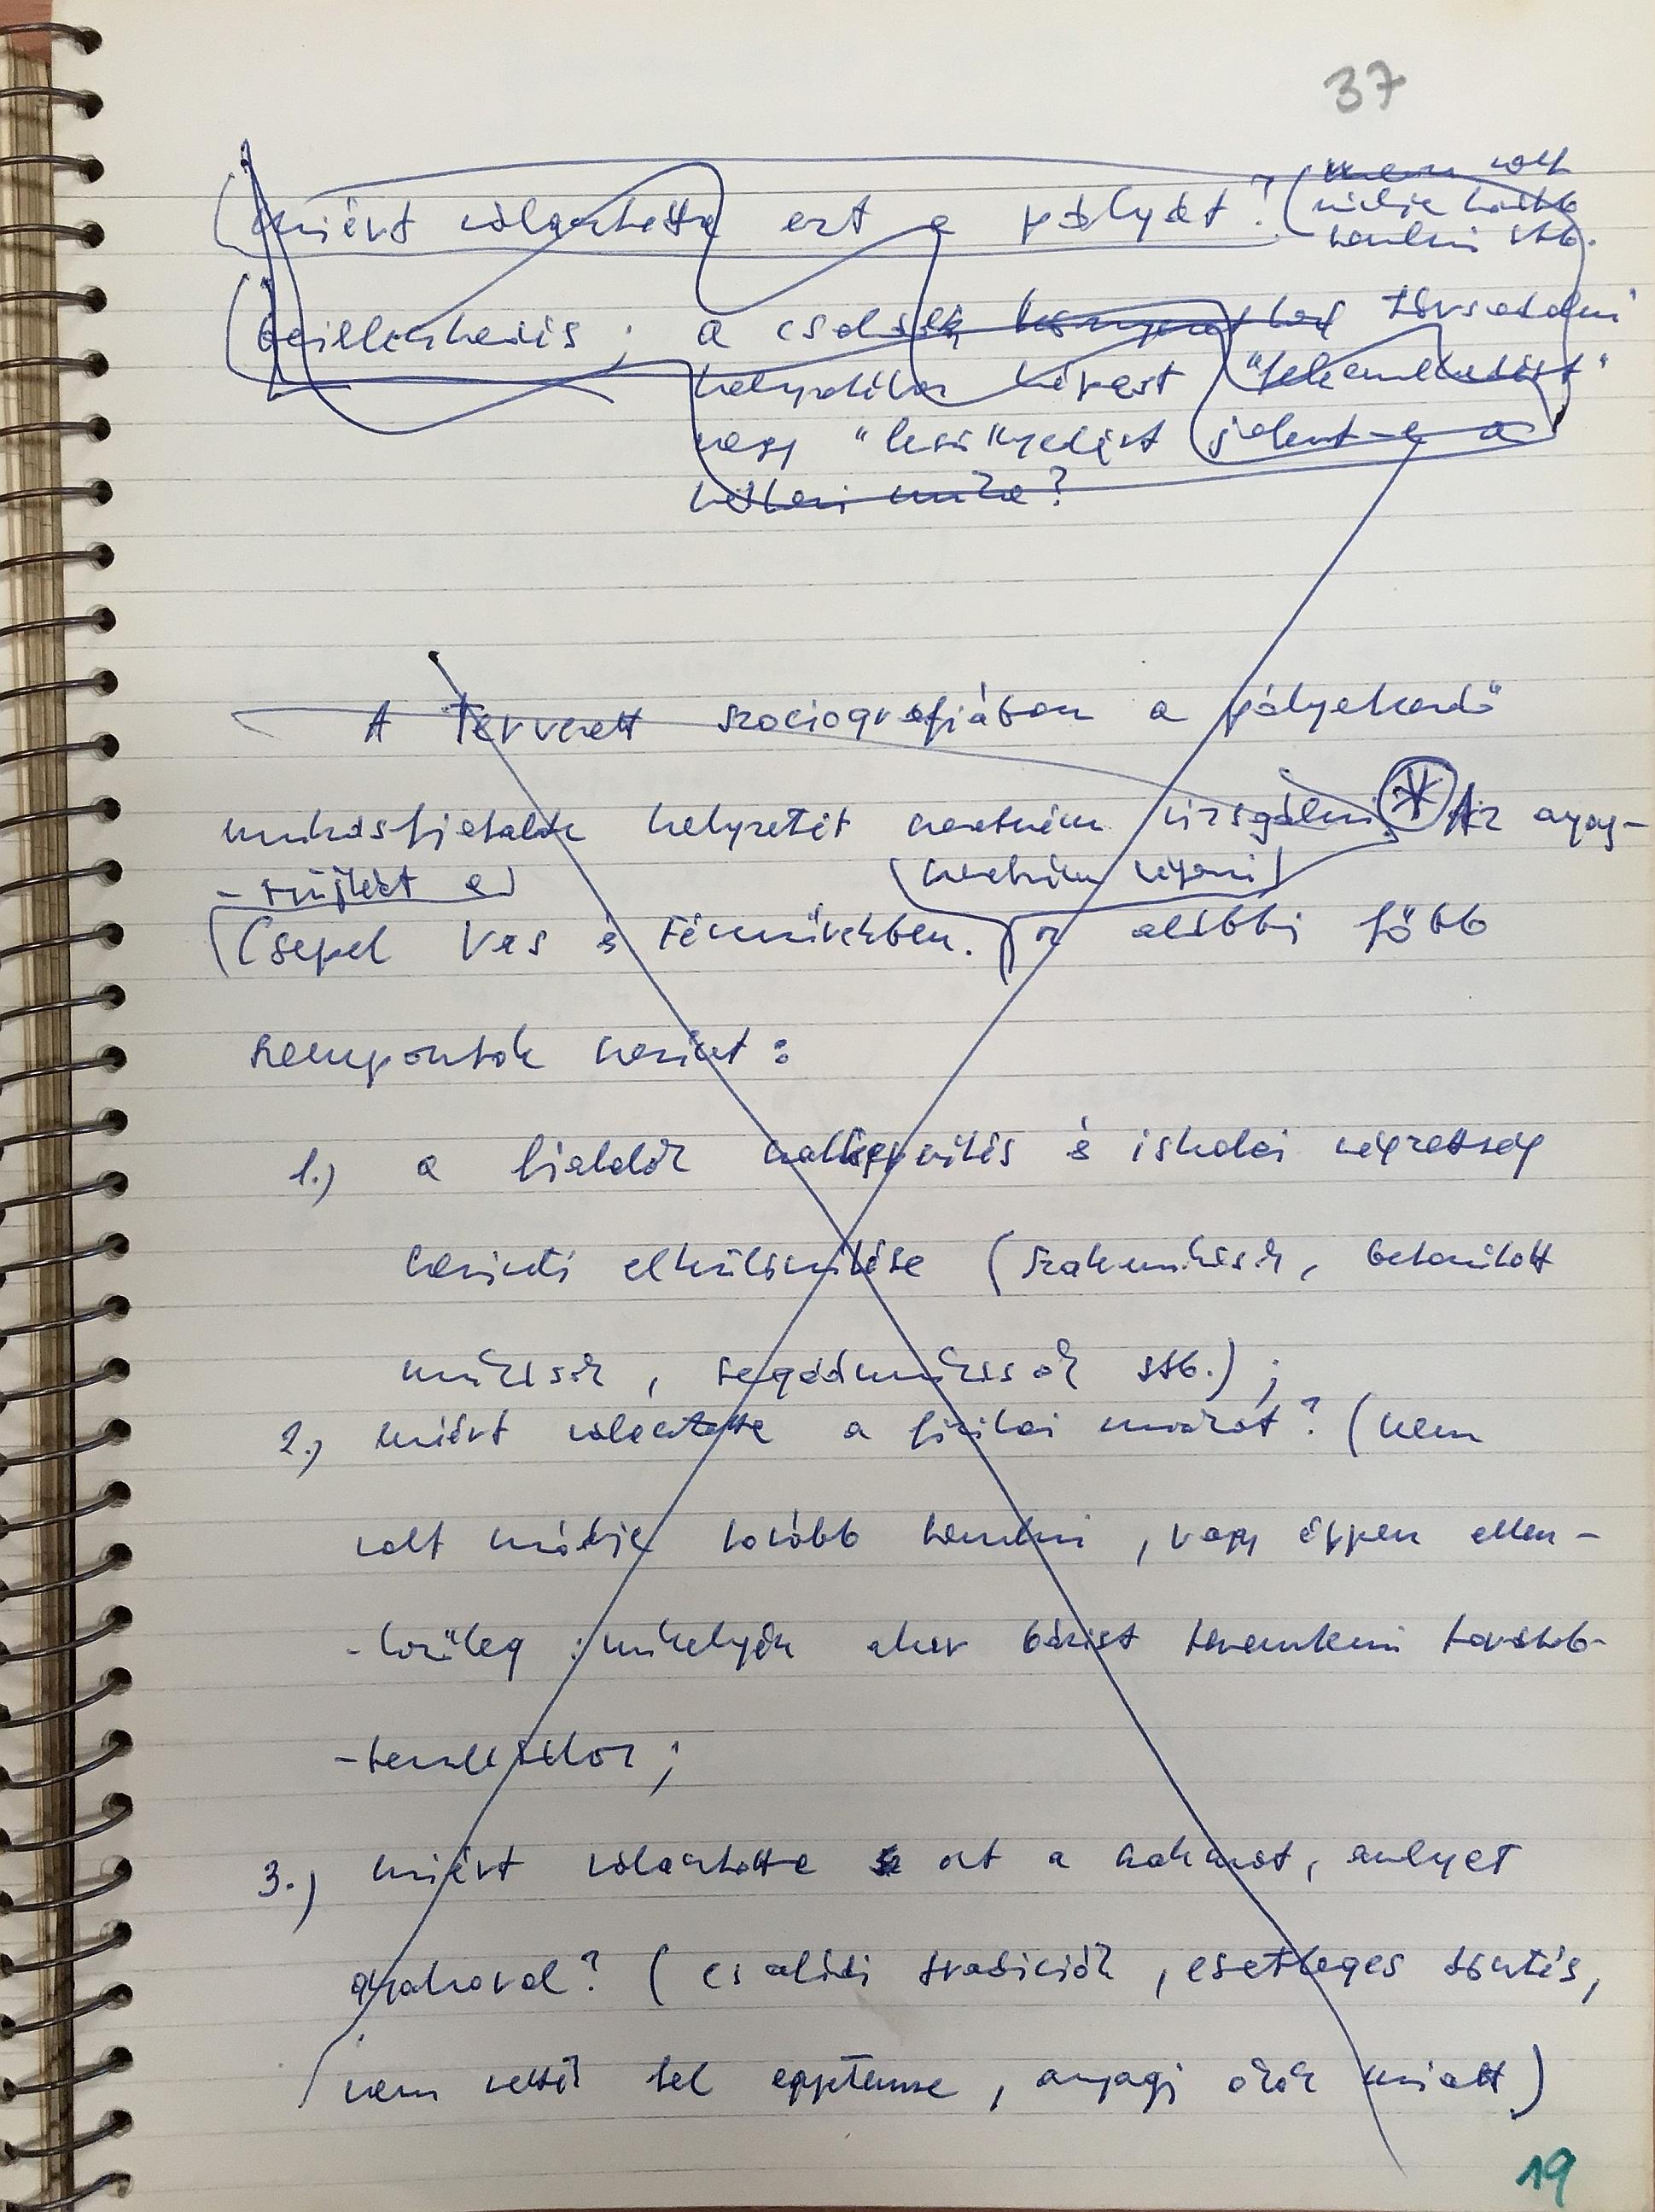 37
miért választotta ezt a pályát? (nem volt
módja tovább
tanulni stb.
beilleszkedés; a családi társadalmi
helyzetéhez képest "felemelkedést"
vagy "lesüllyedést jelent-e a
fizikai munka?
A tervezett szociográfiában a pályakezdő
munkásfiatalok helyzetét szeretném vizsgálni. * Az anyag-
-gyűjtést a
szeretném végezni
Csepel Vas és Fémművekben. az alábbi főbb
szempontok szerint:
1.) a fiatalok szakképzettség és iskolai végzettség
szerinti elkülönülése (szakmunkások, betanított
munkások, segédmunkások stb.);
2.) miért választotta a fizikai munkát? (nem
volt módja tovább tanulni, vagy éppen ellen-
-kezőleg: műhelyek akár bázist teremteni tovább-
-tanuláshoz;
3.) miért választotta azt a szakmát, amelyet
gyakorol? (családi tradíciók, esetleges döntés,
nem vették fel egyetemre, anyagi okok miatt)
19